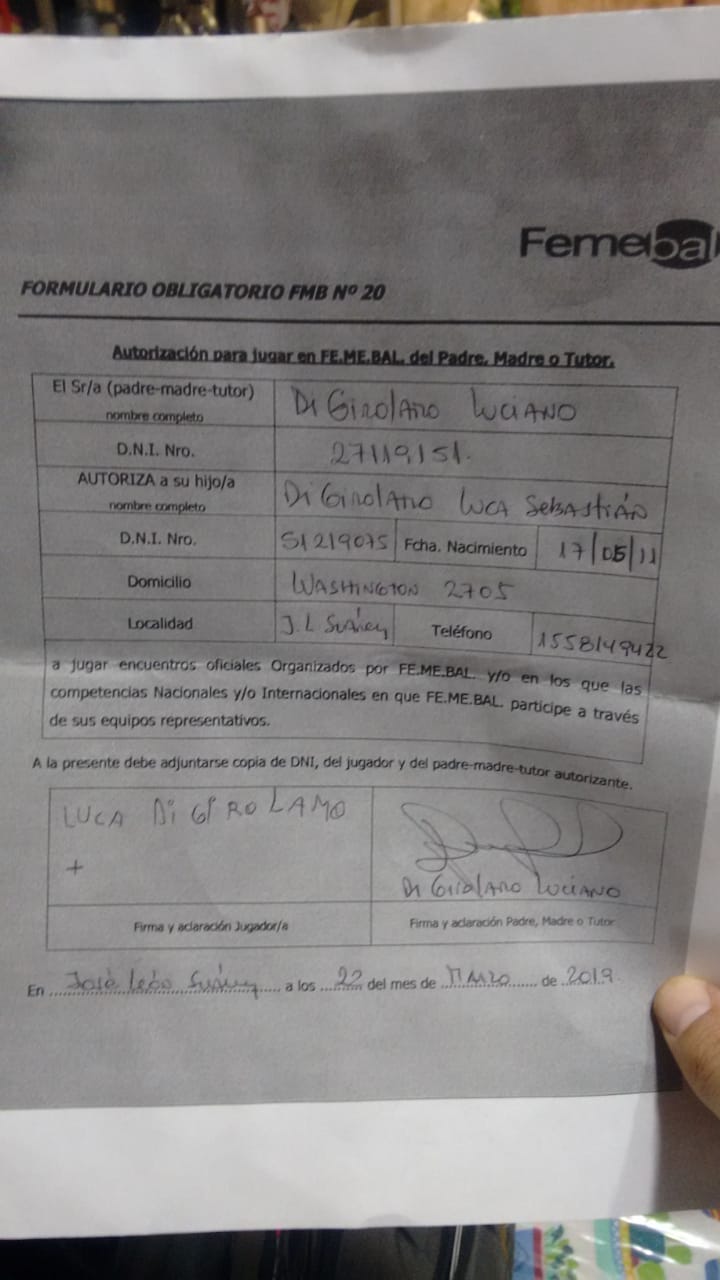 Femebal
FORMULARIO OBLIGATORIO FMB Nº 20
Autorización para jugar en FE.ME.BAL. del Padre, Madre o Tutor.
El Sr/a (padre-madre-tutor) nombre completo Di Girolamo Luciano
D.N.I. Nro. 27119151.
AUTORIZA a su hijo/a nombre completo Di Girolamo Luca Sebastián
D.N.I. Nro. 51219075 Fcha. Nacimiento 17/05/11
Domicilio Washington 2705
Localidad J.L Suárez Teléfono 1558149422
a jugar encuentros oficiales Organizados por FE.ME.BAL. y/o en los que las
competencias Nacionales y/o Internacionales en que FE.ME.BAL. participe a través
de sus equipos representativos.
A la presente debe adjuntarse copia de DNI, del jugador y del padre-madre-tutor autorizante.
LUCA Di GiROLAMO
+
Di Girolamo Luciano
Firma y aclaración Jugador/a Firma y aclaración Padre, Madre o Tutor
En José León Suárez a los 22 del mes de Marzo de 2019.